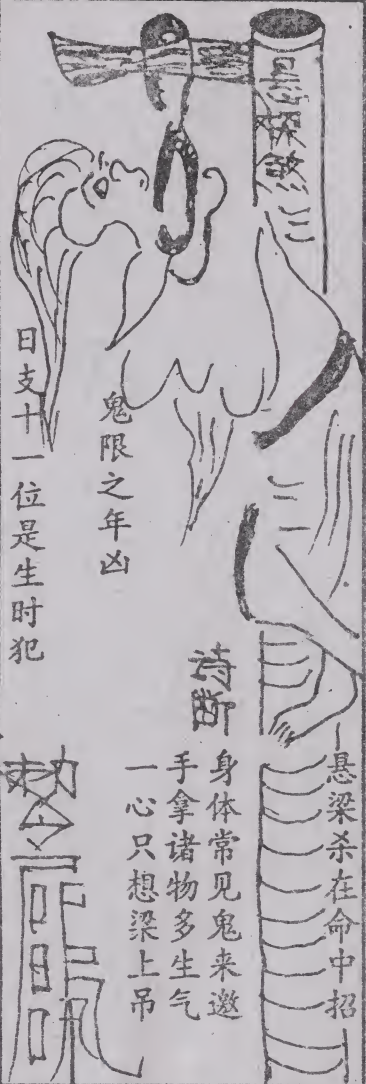 悬梁煞
悬梁杀在命中招
诗断
身体常见鬼来邀
手拿诸物多生气
一心只想梁上吊
鬼限之年凶
日支十一位是生时犯
敕令